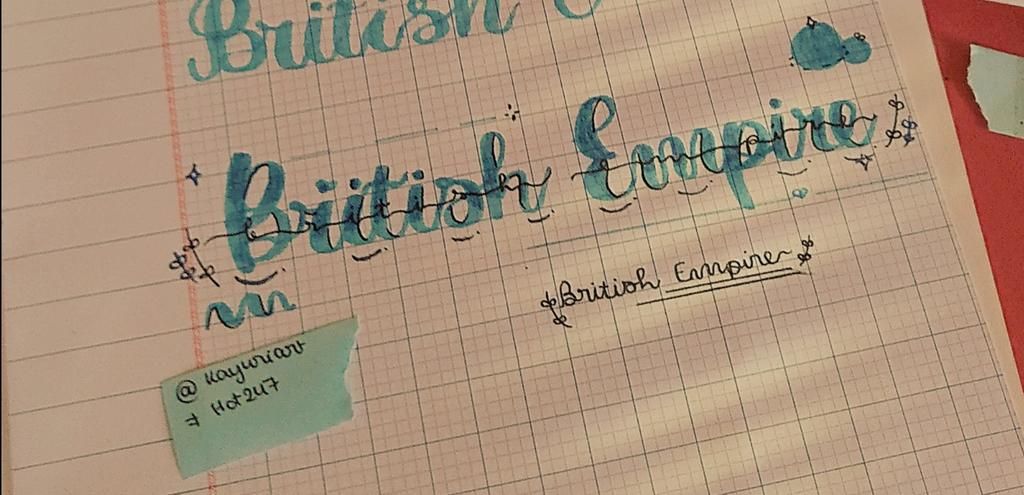 British
British Empire
British Empire
@ Kaywriart
# Hot247